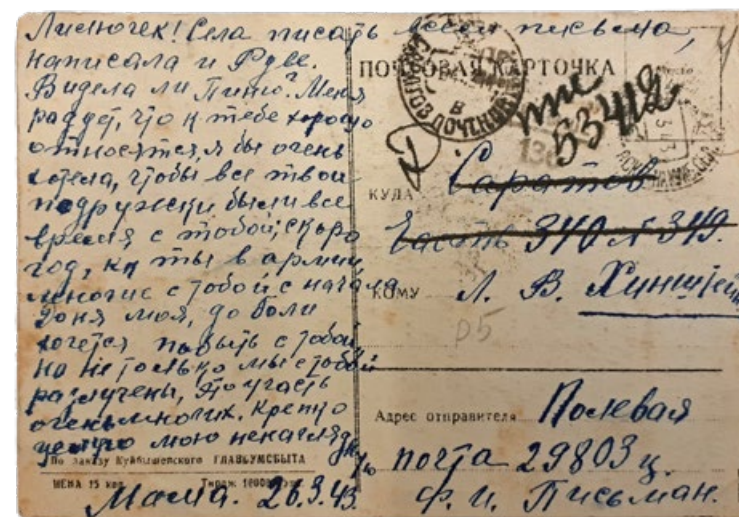 Лисночек! Села писать всем письма,
написала и Рузе.
Видела ли Питю? Меня
радует, что к тебе хорошо
относятся, я бы очень
хотела, чтобы все твои
подружки были все
время с тобой; скоро
год, как ты в армии
многие с тобой с начала
Доня моя, до боли
хочется побыть с тобой,
но не только мы с тобой
разлучены, это участь
очень многих. Крепко
целую мою ненагляд
По заказу Куйбышевского ГЛАВБУМСБЫТА
ЦЕНА 15 коп. Тираж
Мама. 26.3.43.
ПОЧТОВАЯ КАРТОЧКА
ппс
53412
КУДА Саратов
Часть 340 N 349.
КОМУ Л. В. Хинштейн
Адрес отправителя Полевая
почта 29803 ц.
Ф. И. Письман.